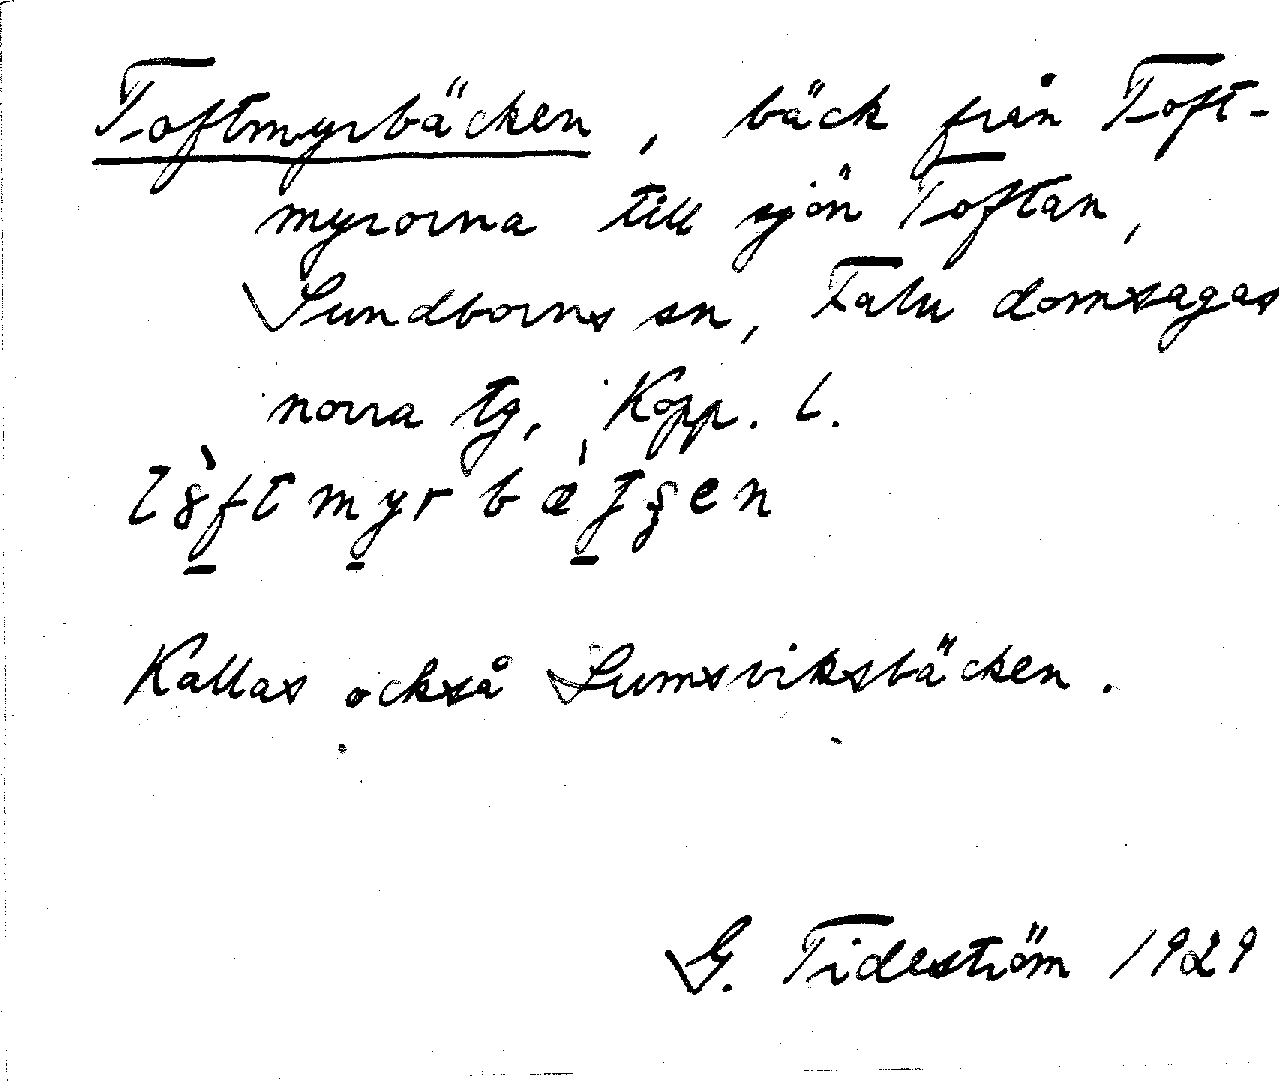 Toftmyrbäcken, bäck från Toft-
myrorna till sjön Toftan,
Sundborns sn, Falu domsagas
norra tg, Kopp. l.
Kallas också Lumsviksbäcken.
G. Tideström 1929